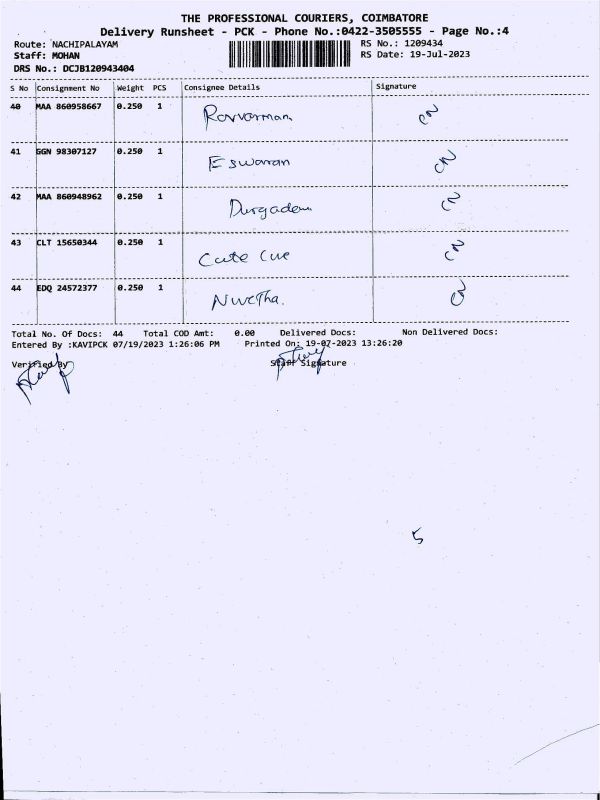 THE PROFESSIONAL COURIERS, COIMBATORE
Delivery Runsheet - PCK - Phone No.:0422-3505555 - Page No.:4
Route: NACHIPALAYAM RS No.: 1209434
Staff: MOHAN RS Date: 19-Jul-2023
DRS No.: DCJB120943404
S No Consignment No Weight PCS Consignee Details Signature
40 MAA 860958667 0.250 1 CN
41 GGN 98307127 0.250 1 Eswaran CN
42 MAA 860948962 0.250 1 Durgadevi CN
43 CLT 15650344 0.250 1 Cute Cue CN
44 EDQ 24572377 0.250 1 Nivetha. CN
Total No. Of Docs: 44 Total COD Amt: 0.00 Delivered Docs: Non Delivered Docs:
Entered By :KAVIPCK 07/19/2023 1:26:06 PM Printed On: 19-07-2023 13:26:20
Verified By Staff Signature
5